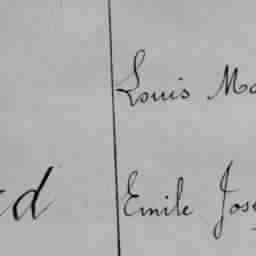 Louis Ma
ed Emile Jose